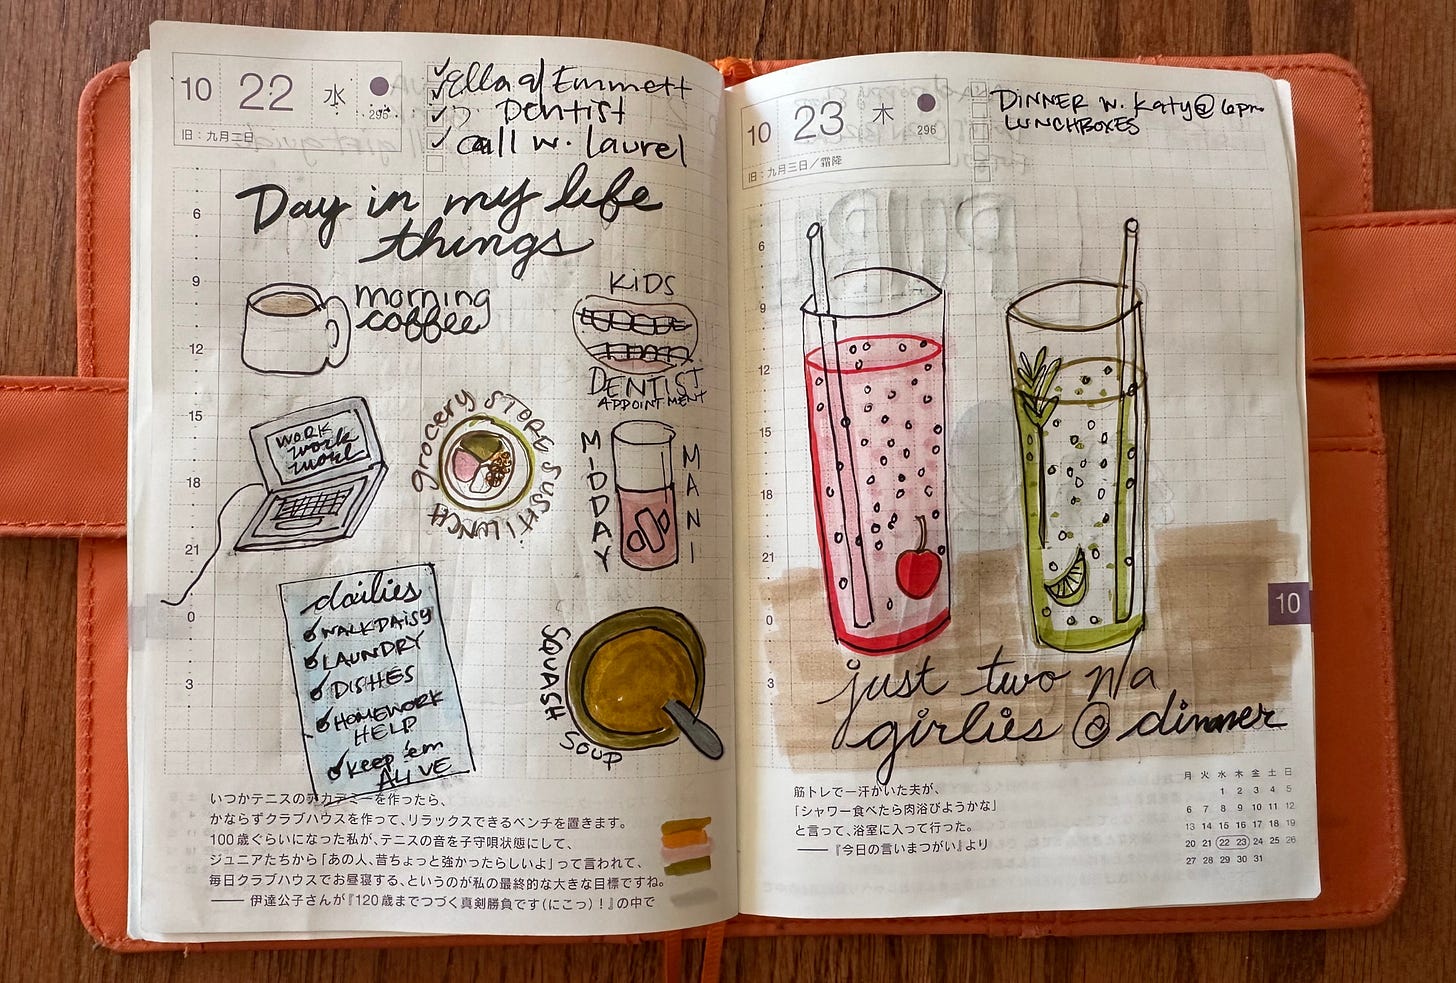 10 22 水 296
旧：九月二日
✓ Ella & Emmett
✓ Dentist
✓ call w. laurel
Day in my life
things
6
9
12
15
18
21
0
3
morning
coffee
KiDS
DENTIST
APPOINTMENT
WORK
work
work
grocery STORE SUSHi LUNCH
MiDDAY
MANI
dailies
WALK DAiSY
LAUNDRY
DISHES
HOMEWORK
HELP
keep 'em
ALIVE
SQUASH
SOUP
いつかテニスのアカデミーを作ったら、
かならずクラブハウスを作って、リラックスできるベンチを置きます。
100歳ぐらいになった私が、テニスの音を子守唄状態にして、
ジュニアたちから「あの人、昔ちょっと強かったらしいよ」って言われて、
毎日クラブハウスでお昼寝する、というのが私の最終的な大きな目標ですね。
—— 伊達公子さんが『120歳までつづく真剣勝負です(にこっ)！』の中で
10 23 木 296
旧：九月三日／霜降
DINNER w. Katy @ 6pm
LUNCHBOXES
6
9
12
15
18
21
0
3
10
just two n/a
girlies @ dinner
筋トレで一汗かいた夫が、
「シャワー食べたら肉浴びようかな」
と言って、浴室に入って行った。
——『今日の言いまつがい』より
月 火 水 木 金 土 日
1 2 3 4 5
6 7 8 9 10 11 12
13 14 15 16 17 18 19
20 21 22 23 24 25 26
27 28 29 30 31